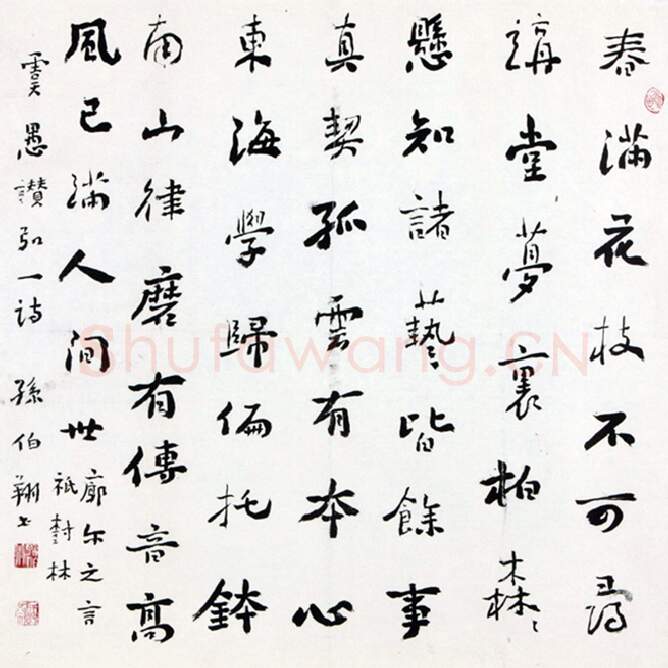 春滿花枝不可尋
講堂夢裏柏森〻
懸知諸藝皆餘事
真契孤雲有本心
東海學歸偏托鉢
南山律磨有傳音高
風已滿人间世
廓尔之言
祇對林
虞愚讚弘一詩 孫伯翔书
Shufawang.CN